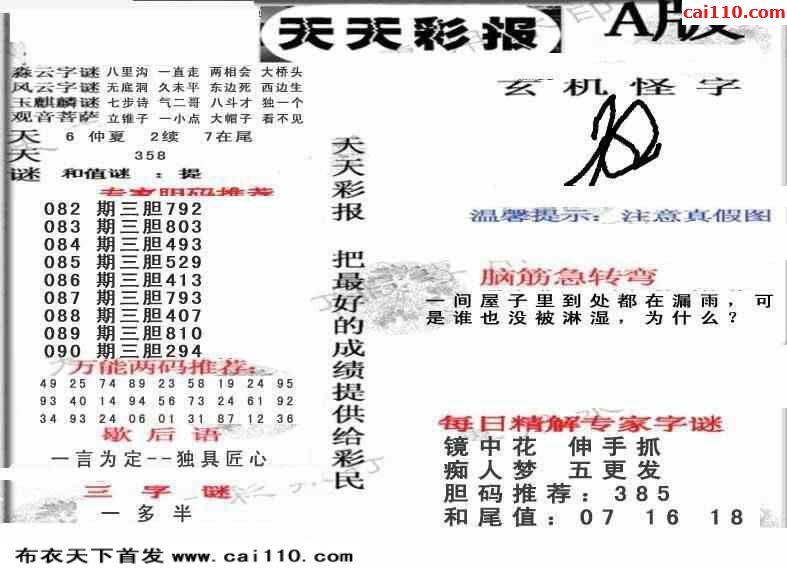 cai110.com
天天彩报 A版
淼云字谜 八里沟 一直走 两相会 大桥头
风云字谜 无底洞 久未平 东边死 西边生
玉麒麟谜 七步诗 气二哥 八斗才 独一个
观音菩萨 立锥子 一小点 大帽子 看不见
天 6 仲夏 2续 7在尾
天 358
谜 和值谜 ：提
专家胆码推荐
082 期三胆792
083 期三胆803
084 期三胆493
085 期三胆529
086 期三胆413
087 期三胆793
088 期三胆407
089 期三胆810
090 期三胆294
万能两码推荐：
49 25 74 89 23 58 19 24 95
93 40 14 94 56 73 24 61 92
34 93 24 06 01 31 87 12 36
歇后语
一言为定--独具匠心
三字谜
一多半
天天彩报 把最好的成绩提供给彩民
玄机怪字
温馨提示：注意真假图
脑筋急转弯
一间屋子里到处都在漏雨，可
是谁也没被淋湿，为什么？
每日精解专家字谜
镜中花 伸手抓
痴人梦 五更发
胆码推荐：385
和尾值：07 16 18
布衣天下首发 www.cai110.com